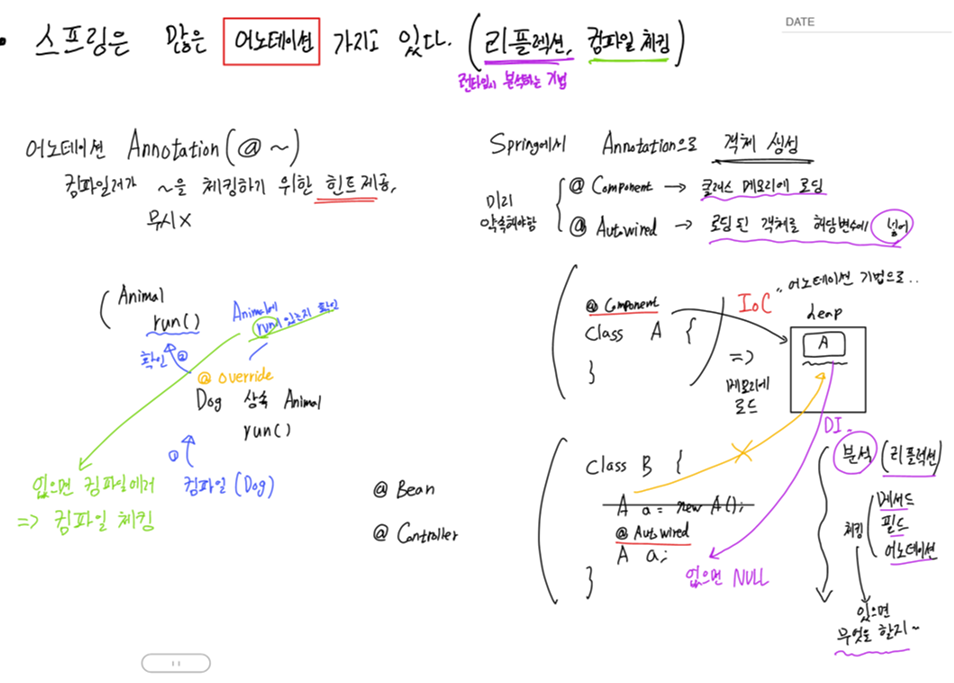 DATE
• 스프링은 많은 어노테이션 가지고 있다. (리플렉션, 컴파일 체킹)
런타임시 분석하는 기법
어노테이션 Annotation (@ ~)
컴파일러가 ~을 체킹하기 위한 힌트 제공,
무시 X
( Animal
run()
Animal에
run이 있는지 확인
확인 ②
@ override
Dog 상속 Animal
run()
①
컴파일 (Dog)
없으면 컴파일에러
=> 컴파일 체킹
@ Bean
@ Controller
Spring에서 Annotation으로 객체 생성
미리
약속해야함
@ Component → 클래스 메모리에 로딩
@ Autowired → 로딩된 객체를 해당변수에 넣어
@ Component
class A {
}
IoC
.. 어노테이션 기법으로..
heap
A
=>
메모리에
로드
DI
class B {
A a = new A();
@ Autowired
A a;
}
없으면 NULL
분석 (리플렉션)
체킹
메서드
필드
어노테이션
있으면
무엇을 할지~